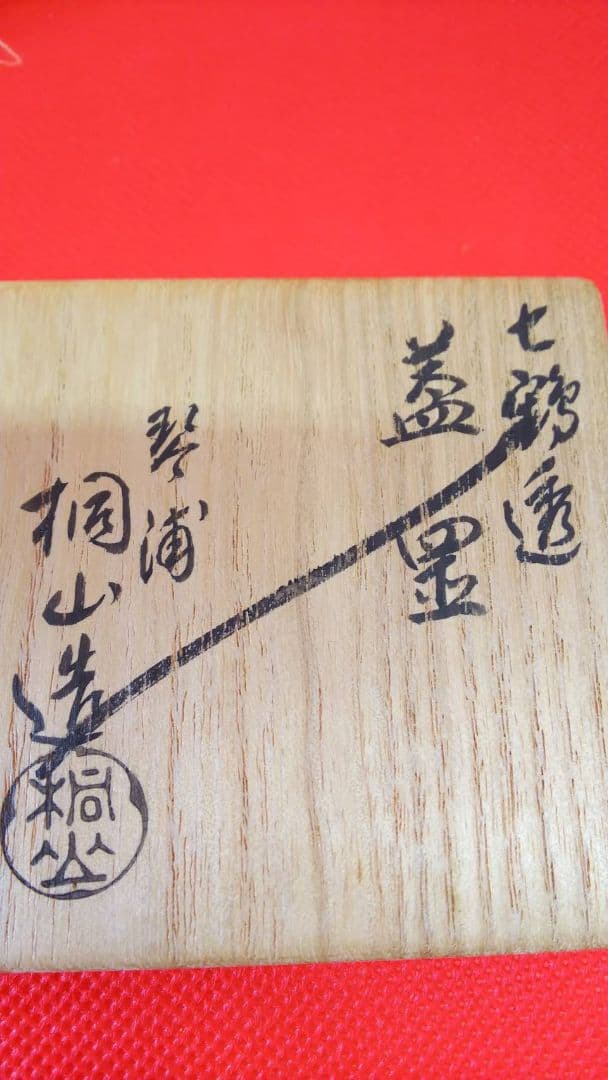 七鶴透
蓋置
琴浦
桐山造
桐山